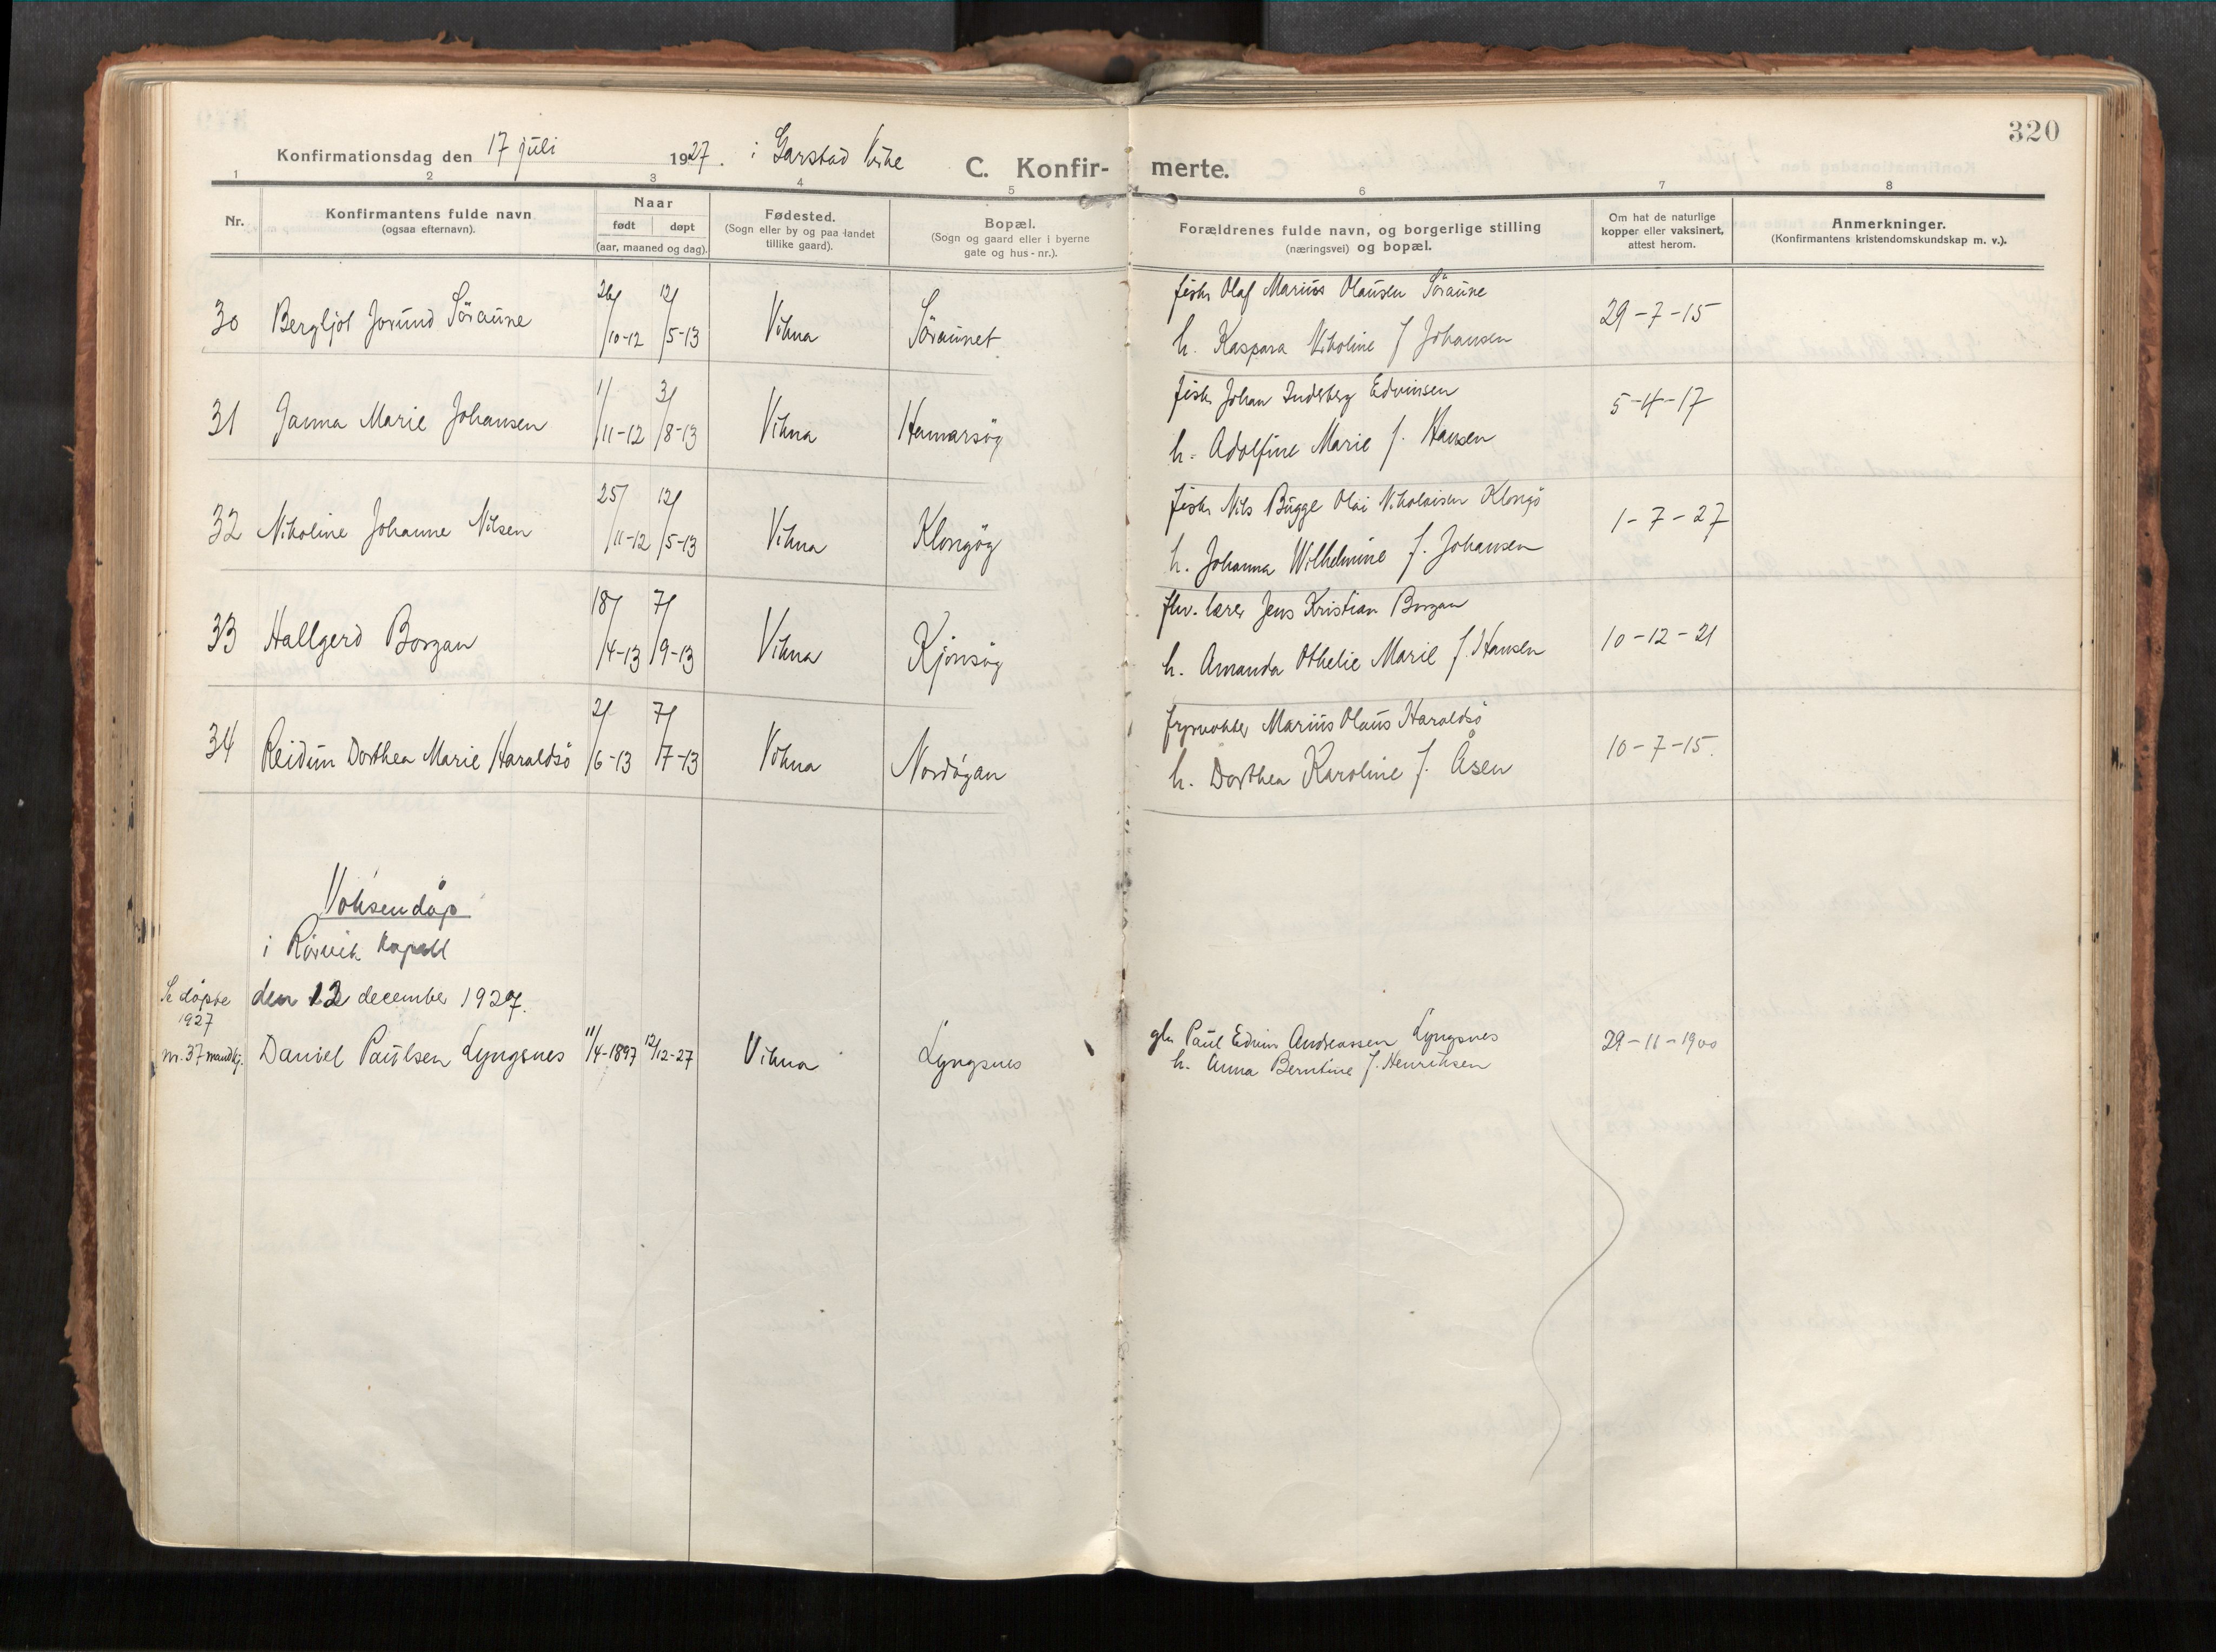 320
Konfirmationsdag den 17 juli 1927. i Garstad kirke
C. Konfir- merte.
1 2 3 4 5 6 7 8
Nr.
Konfirmantens fulde navn
(ogsaa efternavn).
Naar
født døpt
(aar, maaned og dag).
Fødested.
(Sogn eller by og paa landet
tillike gaard).
Bopæl.
(Sogn og gaard eller i byerne
gate og hus-nr.).
Forældrenes fulde navn, og borgerlige stilling
(næringsvei) og bopæl.
Om hat de naturlige
kopper eller vaksinert,
attest herom.
Anmerkninger.
(Konfirmantens kristendomskundskap m. v.).
30 Bergljot Jorund Söraune 26/10-12 12/5-13 Vikna Söraunet
fisk. Olaf Marius Olausen Söraune
h. Kaspara Nikoline f Johansen
29-7-15
31 Janna Marie Johansen 1/11-12 3/8-13 Vikna Hemarsöy
fisk. Johan Inderberg Edvinsen
h. Adolfine Marie f. Hansen
5-4-17
32 Nikoline Johanne Nilsen 25/11-12 12/5-13 Vikna Klongöy
fisk. Nils Bügge Olai Nikolaisen Klongö
h. Johanna Wilhelmine f. Johansen
1-7-27
33 Hallgerd Borgan 18/4-13 7/9-13 Vikna Kjönsöy
fhv. lærer Jens Kristian Borgan
h. Amanda Othelie Marie f. Hansen
10-12-21
34 Reidun Dorthea Marie Haraldsö 2/6-13 7/7-13 Vikna Nordöyan
fyrvokter Marius Olaus Haraldsö
h. Dorthea Karoline f. Åsen
10-7-15.
Voksendåp
i Rörvik kapell
den 12 december 1927.
Se döpte
1927
nr. 37 mandkj.
Daniel Paulsen Lyngsnes 11/4-1897 12/12-27 Vikna Lyngsnes
gbr Paul Edvin Andreassen Lyngsnes
h. Anna Berntine f. Henriksen
29-11-1900